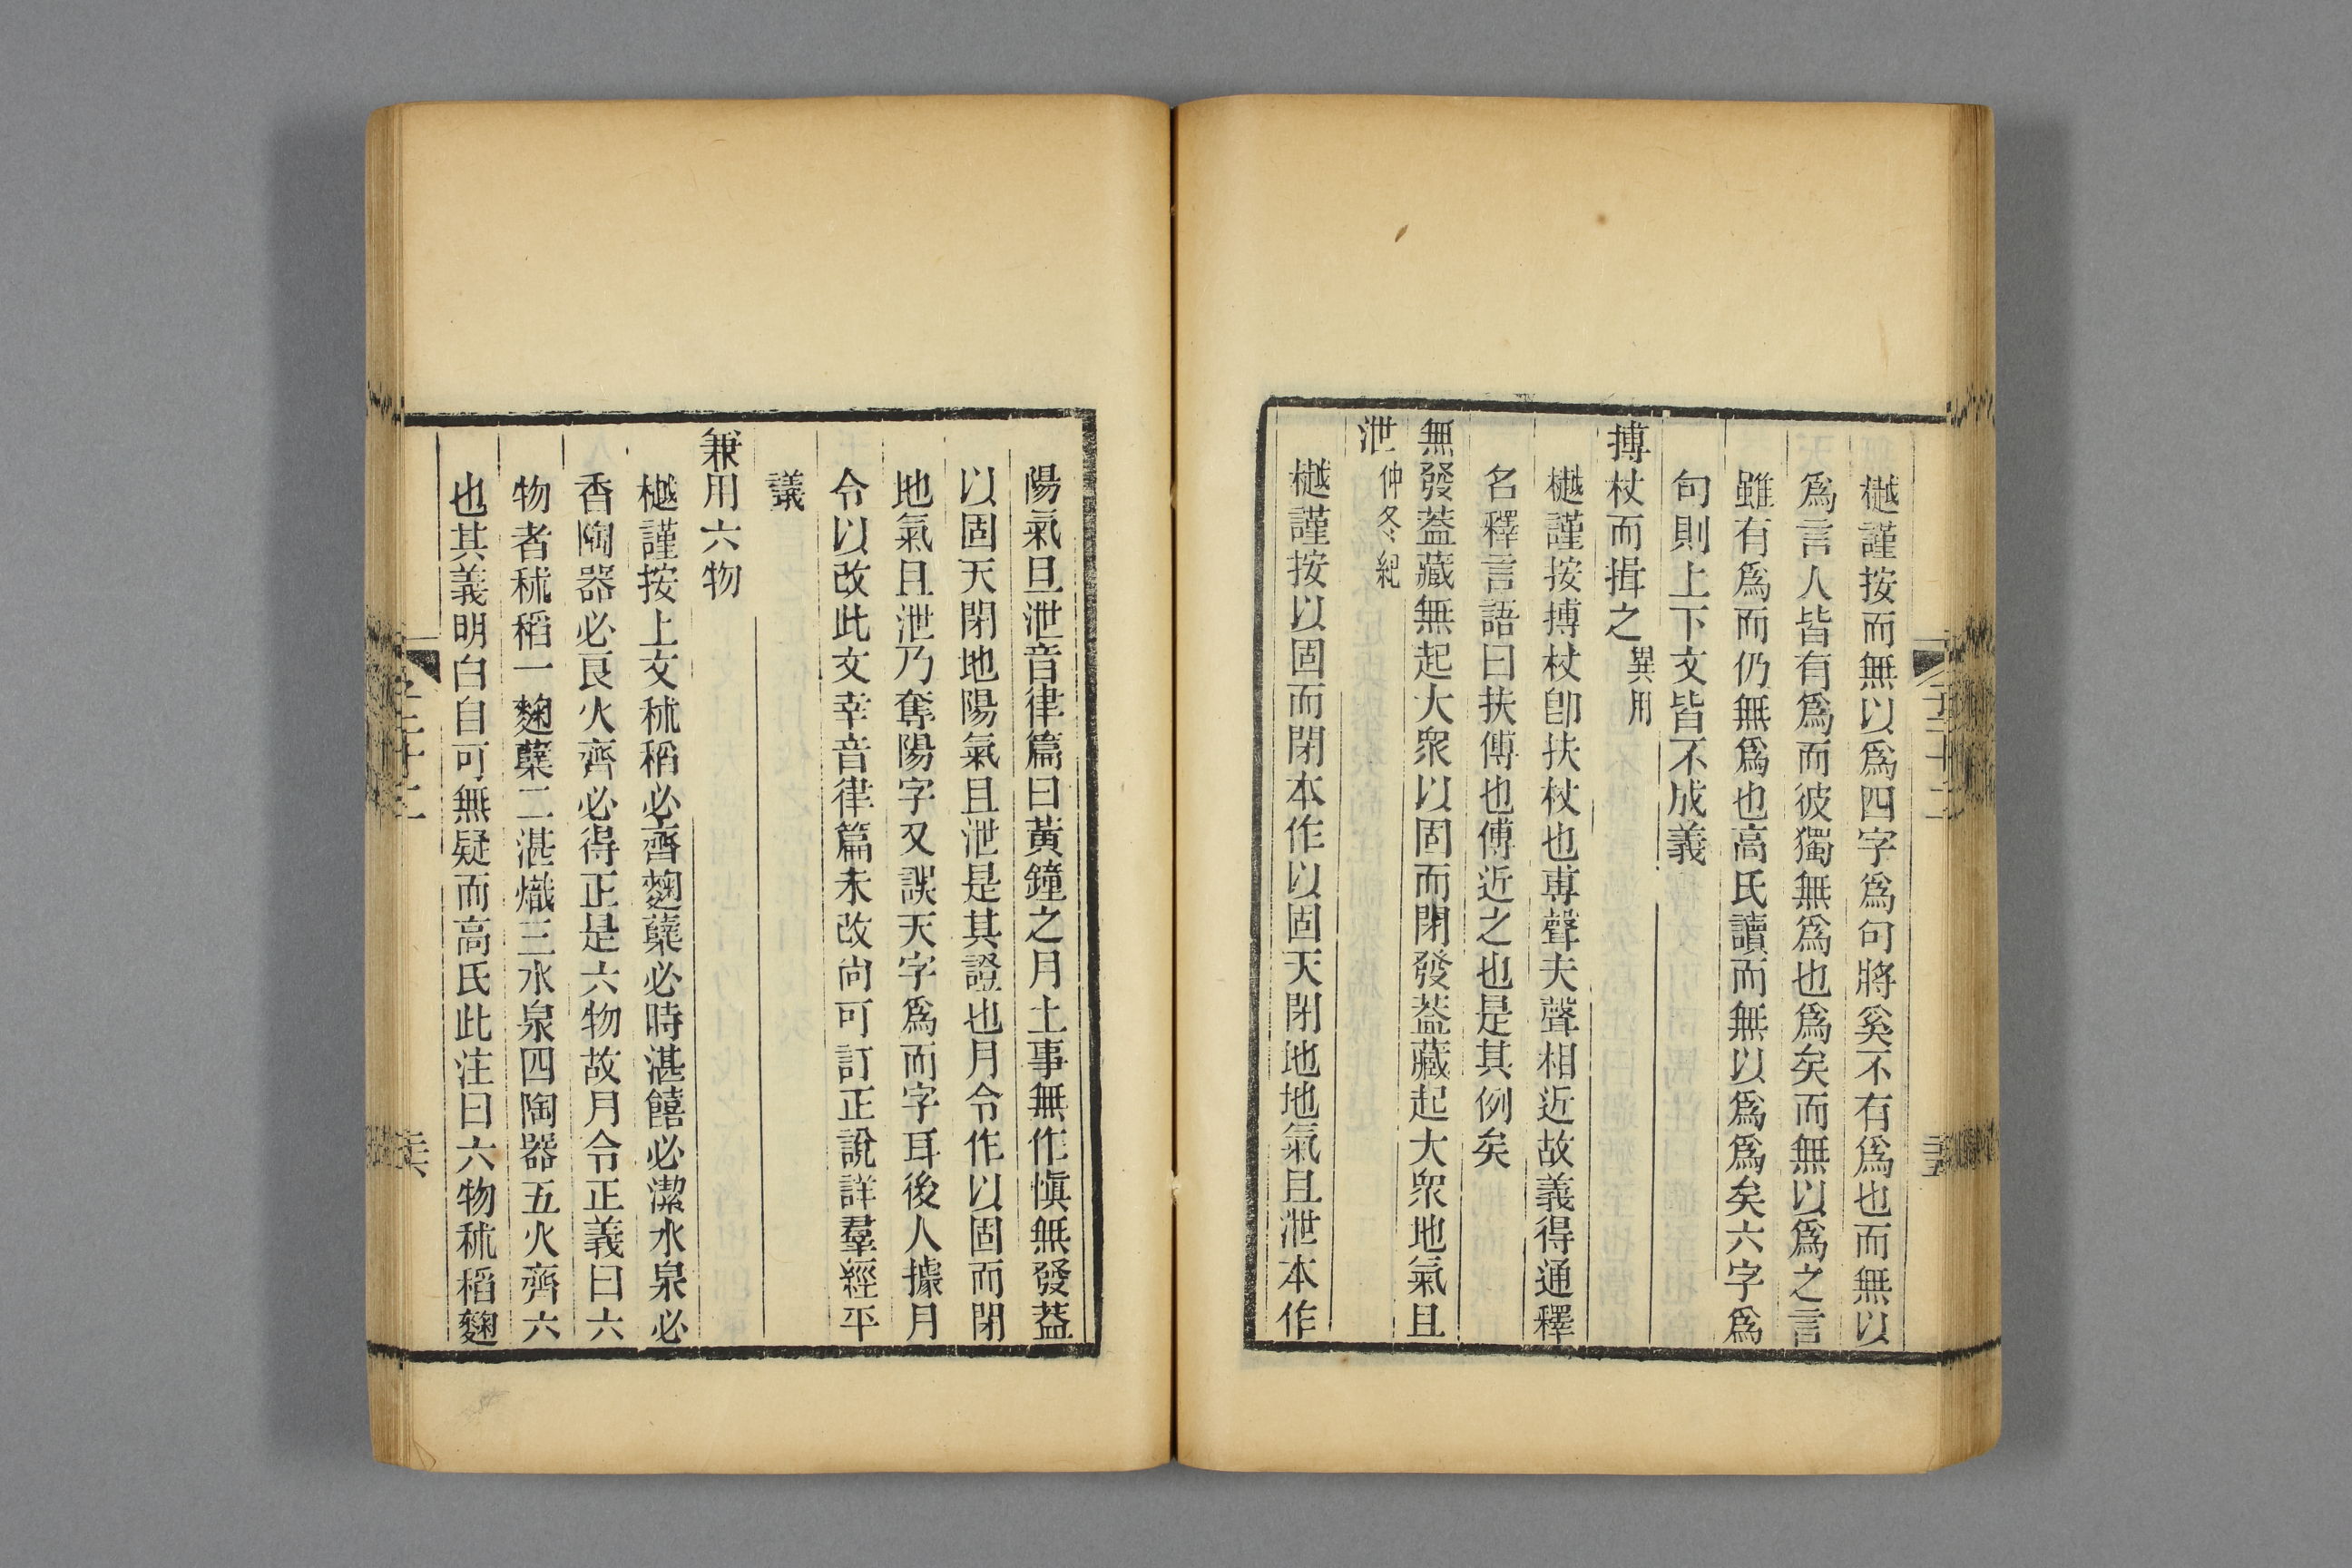 樾謹按而無以爲四字爲句將奚不有爲也而無以
爲言人皆有爲而彼獨無爲也爲矣而無以爲之言
雖有爲而仍無爲也高氏讀而無以爲爲矣六字爲
句則上下文皆不成義
搏杖而揖之 異用
樾謹按搏杖卽扶杖也尃聲夫聲相近故義得通釋
名釋言語曰扶傅也傅近之也是其例矣
無發蓋藏無起大眾以固而閉發蓋藏起大眾地氣且
泄 仲冬紀
樾謹按以固而閉本作以固天閉地地氣且泄本作
陽氣且泄音律篇曰黃鐘之月土事無作愼無發蓋
以固天閉地陽氣且泄是其證也月令作以固而閉
地氣且泄乃奪陽字又誤天字爲而字耳後人據月
令以改此文幸音律篇未改尙可訂正說詳羣經平
議
兼用六物
樾謹按上文秫稻必齊麴糵必時湛饎必潔水泉必
香陶器必良火齊必得正是六物故月令正義曰六
物者秫稻一麴糵二湛熾三水泉四陶器五火齊六
也其義明白自可無疑而高氏此注曰六物秫稻麴